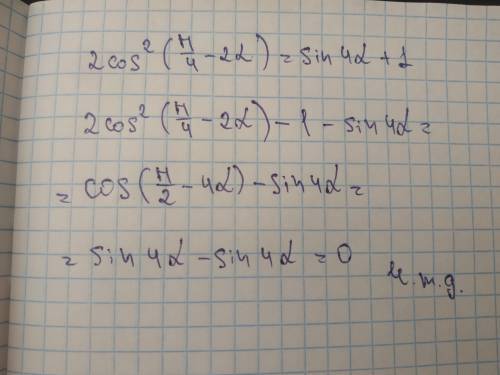 2cos²(π/4 - 2α) = sin 4α + 1
2cos²(π/4 - 2α) - 1 - sin 4α =
= cos(π/2 - 4α) - sin 4α =
= sin 4α - sin 4α = 0
ч.т.д.